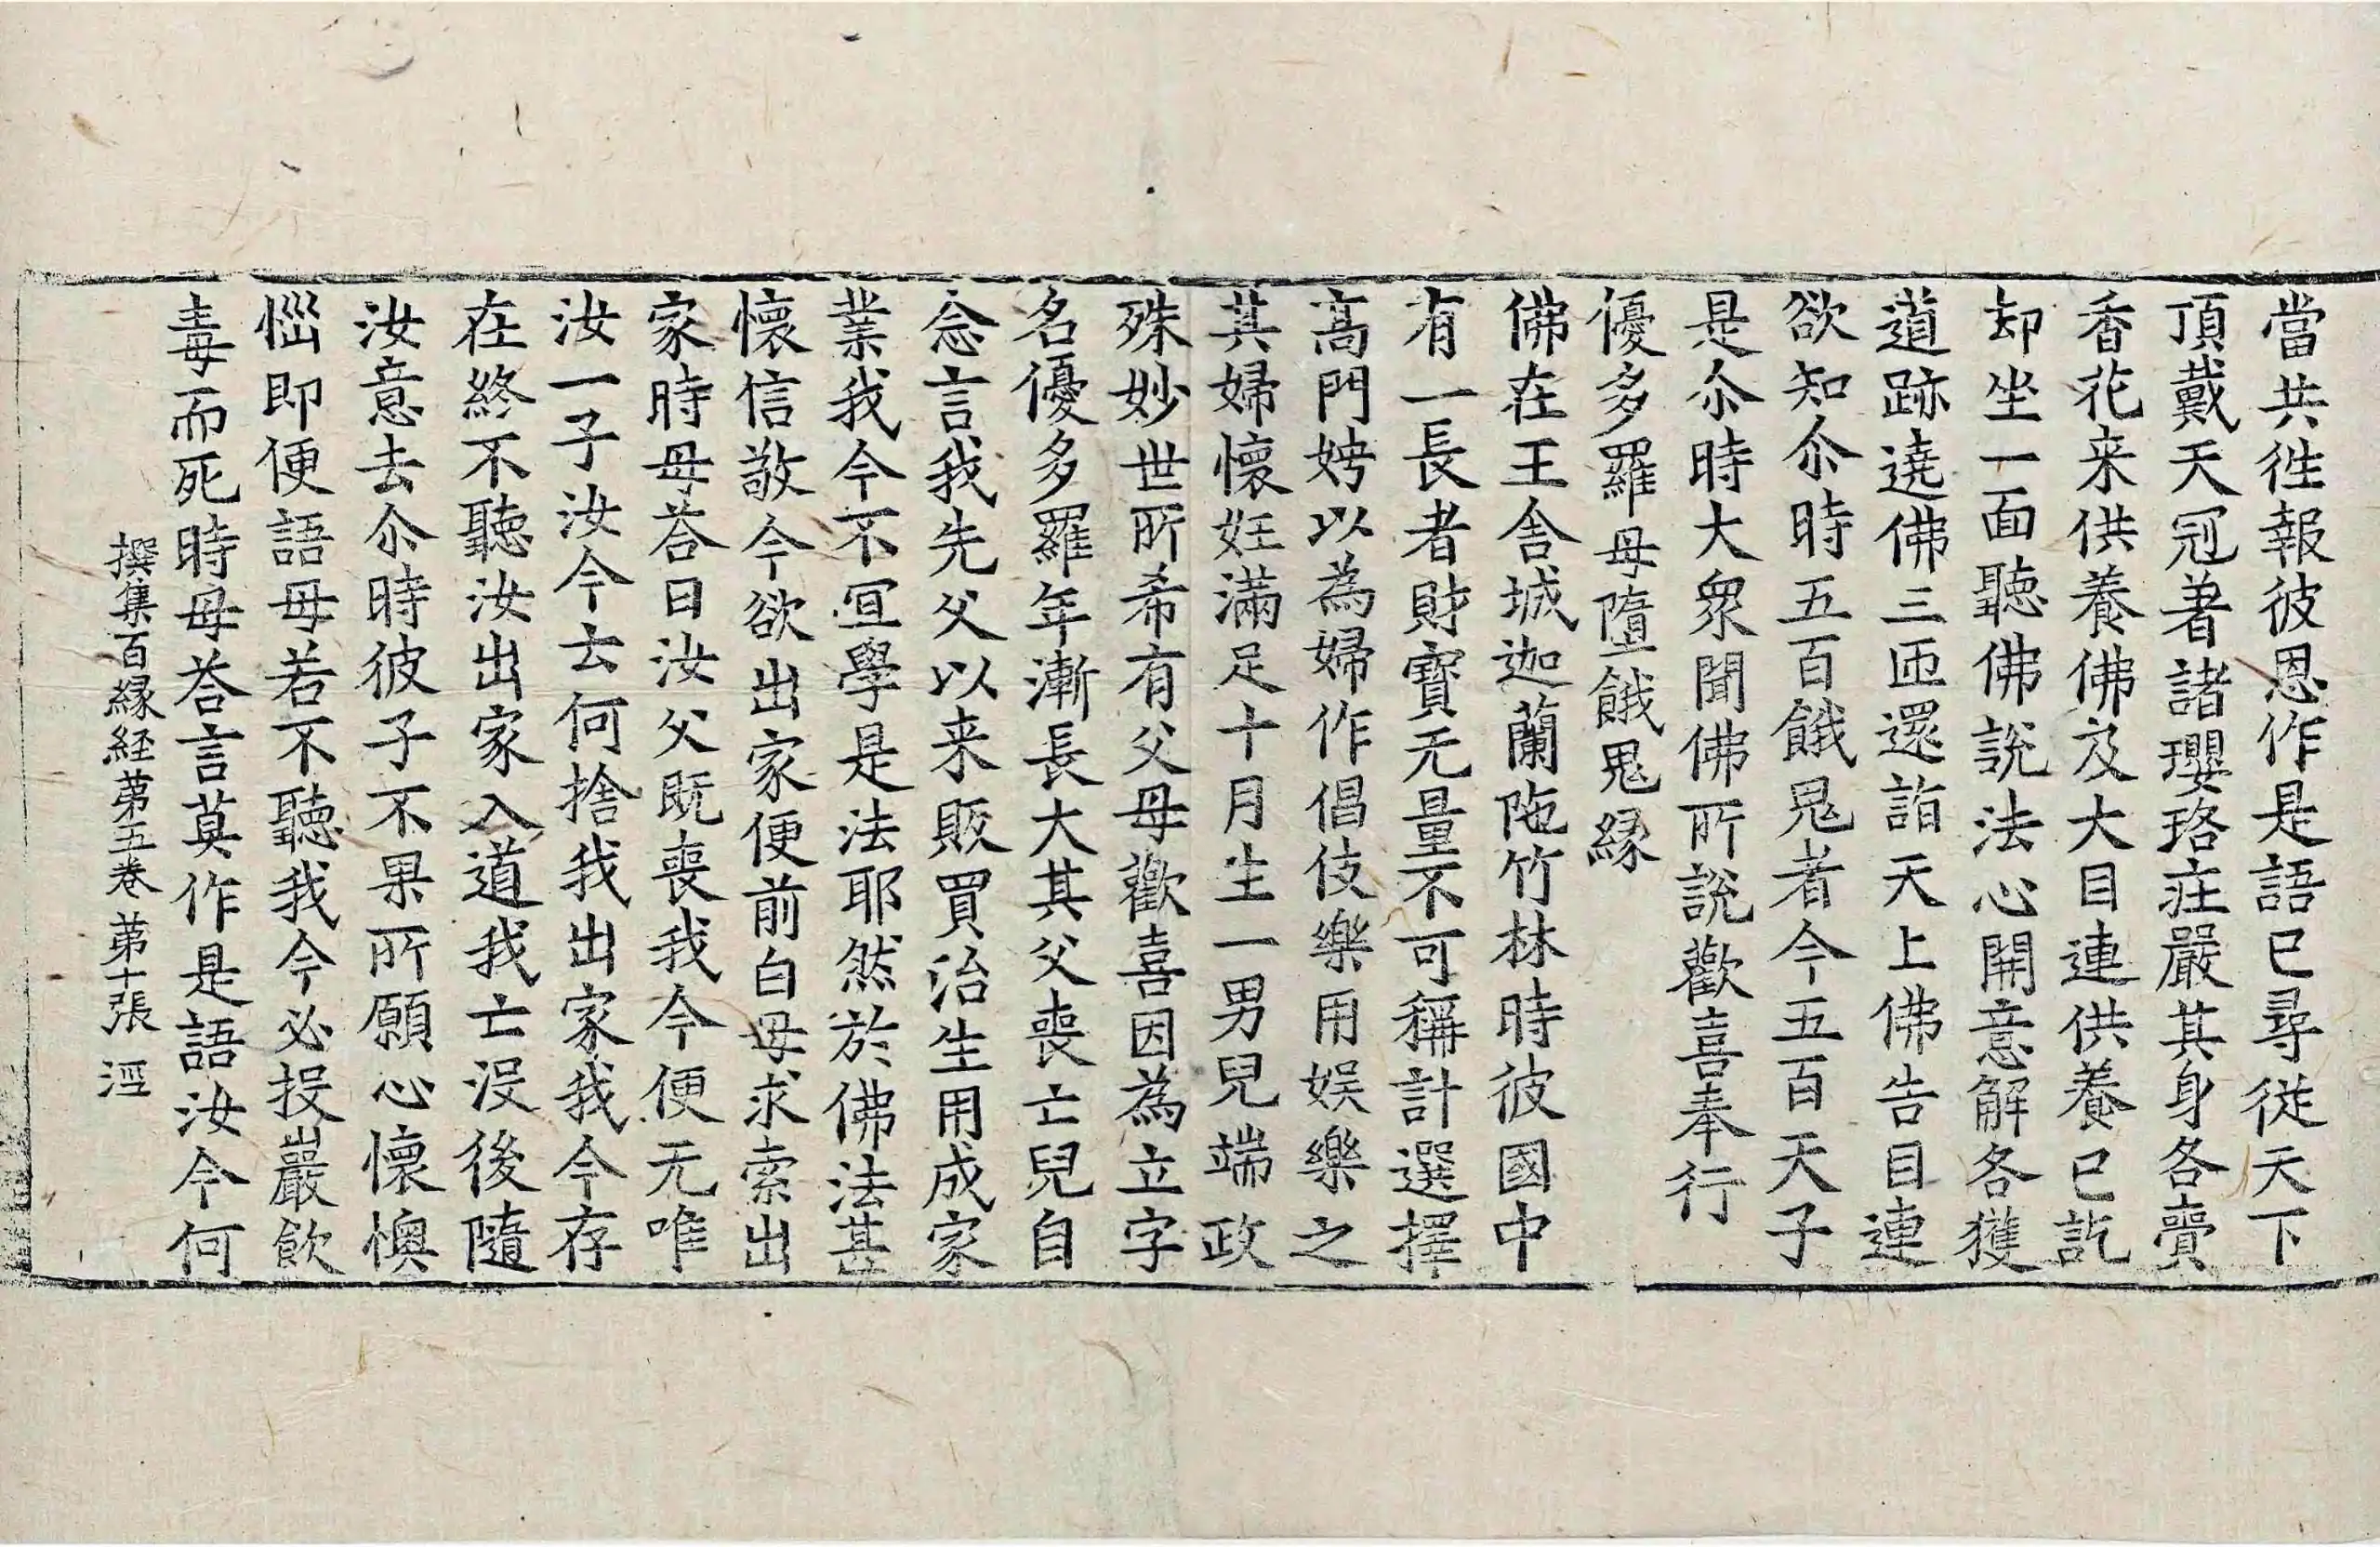 當共徃報彼恩作是語已尋從天下
頂戴天冠著諸瓔珞莊嚴其身各賷
香花来供養佛及大目連供養已訖
却坐一面聽佛說法心開意解各獲
道跡遶佛三匝還詣天上佛告目連
欲知尒時五百餓鬼者今五百天子
是尒時大衆聞佛所說歡喜奉行
優多羅母墮餓鬼緣
佛在王舍城迦蘭陁竹林時彼國中
有一長者財寶无量不可稱計選擇
高門娉以為婦作倡伎樂用娱樂之
其婦懷妊滿足十月生一男兒端政
殊妙世所希有父母歡喜因為立字
名優多羅年漸長大其父喪亡兒自
念言我先父以来販買治生用成家
業我今不宜學是法耶然於佛法甚
懷信敬今欲出家便前白母求索出
家時母荅曰汝父既喪我今便无唯
汝一子汝今云何捨我出家我今存
在終不聽汝出家入道我亡没後隨
汝意去尒時彼子不果所願心懷懊
惱即便語母若不聽我今必投巖飲
毒而死時母荅言莫作是語汝今何
撰集百緣経苐五卷 苐十張 涇